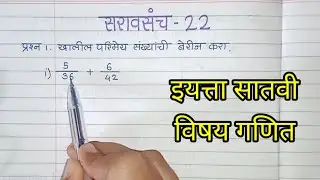 सरावसंच - 22
प्रश्न 1. खालील परिमेय संख्यांची बेरीज करा.
1) 5/36 + 6/42
इयत्ता सातवी
विषय गणित